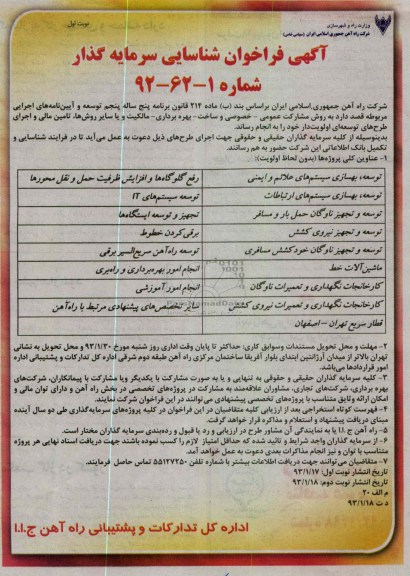 نوبت اول
وزارت راه و شهرسازی
شرکت راه آهن جمهوری اسلامی ایران (سهامی خاص)
آگهی فراخوان شناسایی سرمایه گذار
شماره ۱-۶۲-۹۲
شرکت راه آهن جمهوری اسلامی ایران براساس بند (ب) ماده ۲۱۴ قانون برنامه پنج ساله پنجم توسعه و آیین‌نامه‌های اجرایی
مربوطه قصد دارد به روش مشارکت عمومی - خصوصی و ساخت - بهره برداری - مالکیت و یا سایر روش‌ها، تامین مالی و اجرای
طرح‌های توسعه‌ای اولویت‌دار خود را به انجام رساند.
بدینوسیله از کلیه سرمایه گذاران حقیقی و حقوقی جهت اجرای طرح‌های ذیل دعوت به عمل می‌آید تا در فرایند شناسایی و
تکمیل بانک اطلاعاتی این شرکت حضور به هم رسانند.
۱- عناوین کلی پروژه‌ها (بدون لحاظ اولویت):
توسعه، بهسازی سیستم‌های علائم و ایمنی
رفع گلوگاه‌ها و افزایش ظرفیت حمل و نقل محورها
توسعه، بهسازی سیستم‌های ارتباطات
توسعه سیستم‌های IT
توسعه و تجهیز ناوگان حمل بار و مسافر
تجهیز و توسعه ایستگاه‌ها
توسعه و تجهیز نیروی کشش
برقی‌کردن خطوط
توسعه و تجهیز ناوگان خودکشش مسافری
توسعه راه‌آهن سریع‌السیر برقی
ماشین‌آلات خط
انجام امور بهره‌برداری و راهبری
کارخانجات نگهداری و تعمیرات ناوگان
انجام امور آموزشی
کارخانجات نگهداری و تعمیرات نیروی کشش
سایر تخصص‌های پیشنهادی مرتبط با راه‌آهن
قطار سریع تهران - اصفهان
۲- مهلت و محل تحویل مستندات وسوابق کاری: حداکثر تا پایان وقت اداری روز شنبه مورخ ۹۳/۱/۳۰ و محل تحویل به نشانی
تهران بالاتر از میدان آرژانتین ابتدای بلوار آفریقا ساختمان مرکزی راه آهن طبقه دوم شرقی اداره کل تدارکات و پشتیبانی اداره
امور قراردادها می‌باشد.
۳- کلیه سرمایه گذاران حقیقی و حقوقی به تنهایی و یا به صورت مشارکت با یکدیگر ویا مشارکت با پیمانکاران، شرکت‌های
بهره برداری، شرکت‌های تجاری، مشاوران علاقه‌مند به مشارکت در پروژه‌های تخصصی در بخش راه آهن و دارای توان مالی و
امکان ارائه وثایق متناسب با پروژه‌های تخصصی پیشنهادی می‌توانند در این فراخوان شرکت نمایند.
۴- فهرست کوتاه استخراجی بعد از ارزیابی کلیه متقاضیان در این فراخوان در کلیه پروژه‌های سرمایه‌گذاری طی دو سال آینده
مبنای دریافت پیشنهاد و استعلام و مذاکره قرار خواهد گرفت.
۵- راه آهن ج.ا.ا یا به نمایندگی آن مشاور طرح در ارزیابی و رد یا قبول و رده‌بندی سرمایه گذاران مختار است.
۶- از سرمایه گذاران واجد شرایط و تائید شده که حداقل امتیاز لازم را کسب نموده باشند جهت دریافت اسناد نهایی هر پروژه
متناسب با توان و نیز انجام مذاکرات بعدی دعوت به عمل خواهد آمد.
۷- متقاضیان می‌توانند جهت دریافت اطلاعات بیشتر با شماره تلفن ۵۵۱۲۷۲۵۰ تماس حاصل فرمایند.
تاریخ انتشار نوبت اول: ۹۳/۱/۱۷
تاریخ انتشار نوبت دوم: ۹۳/۱/۱۸
م الف ۲۰
د ت ۹۳/۱/۱۸
اداره کل تدارکات و پشتیبانی راه آهن ج.ا.ا